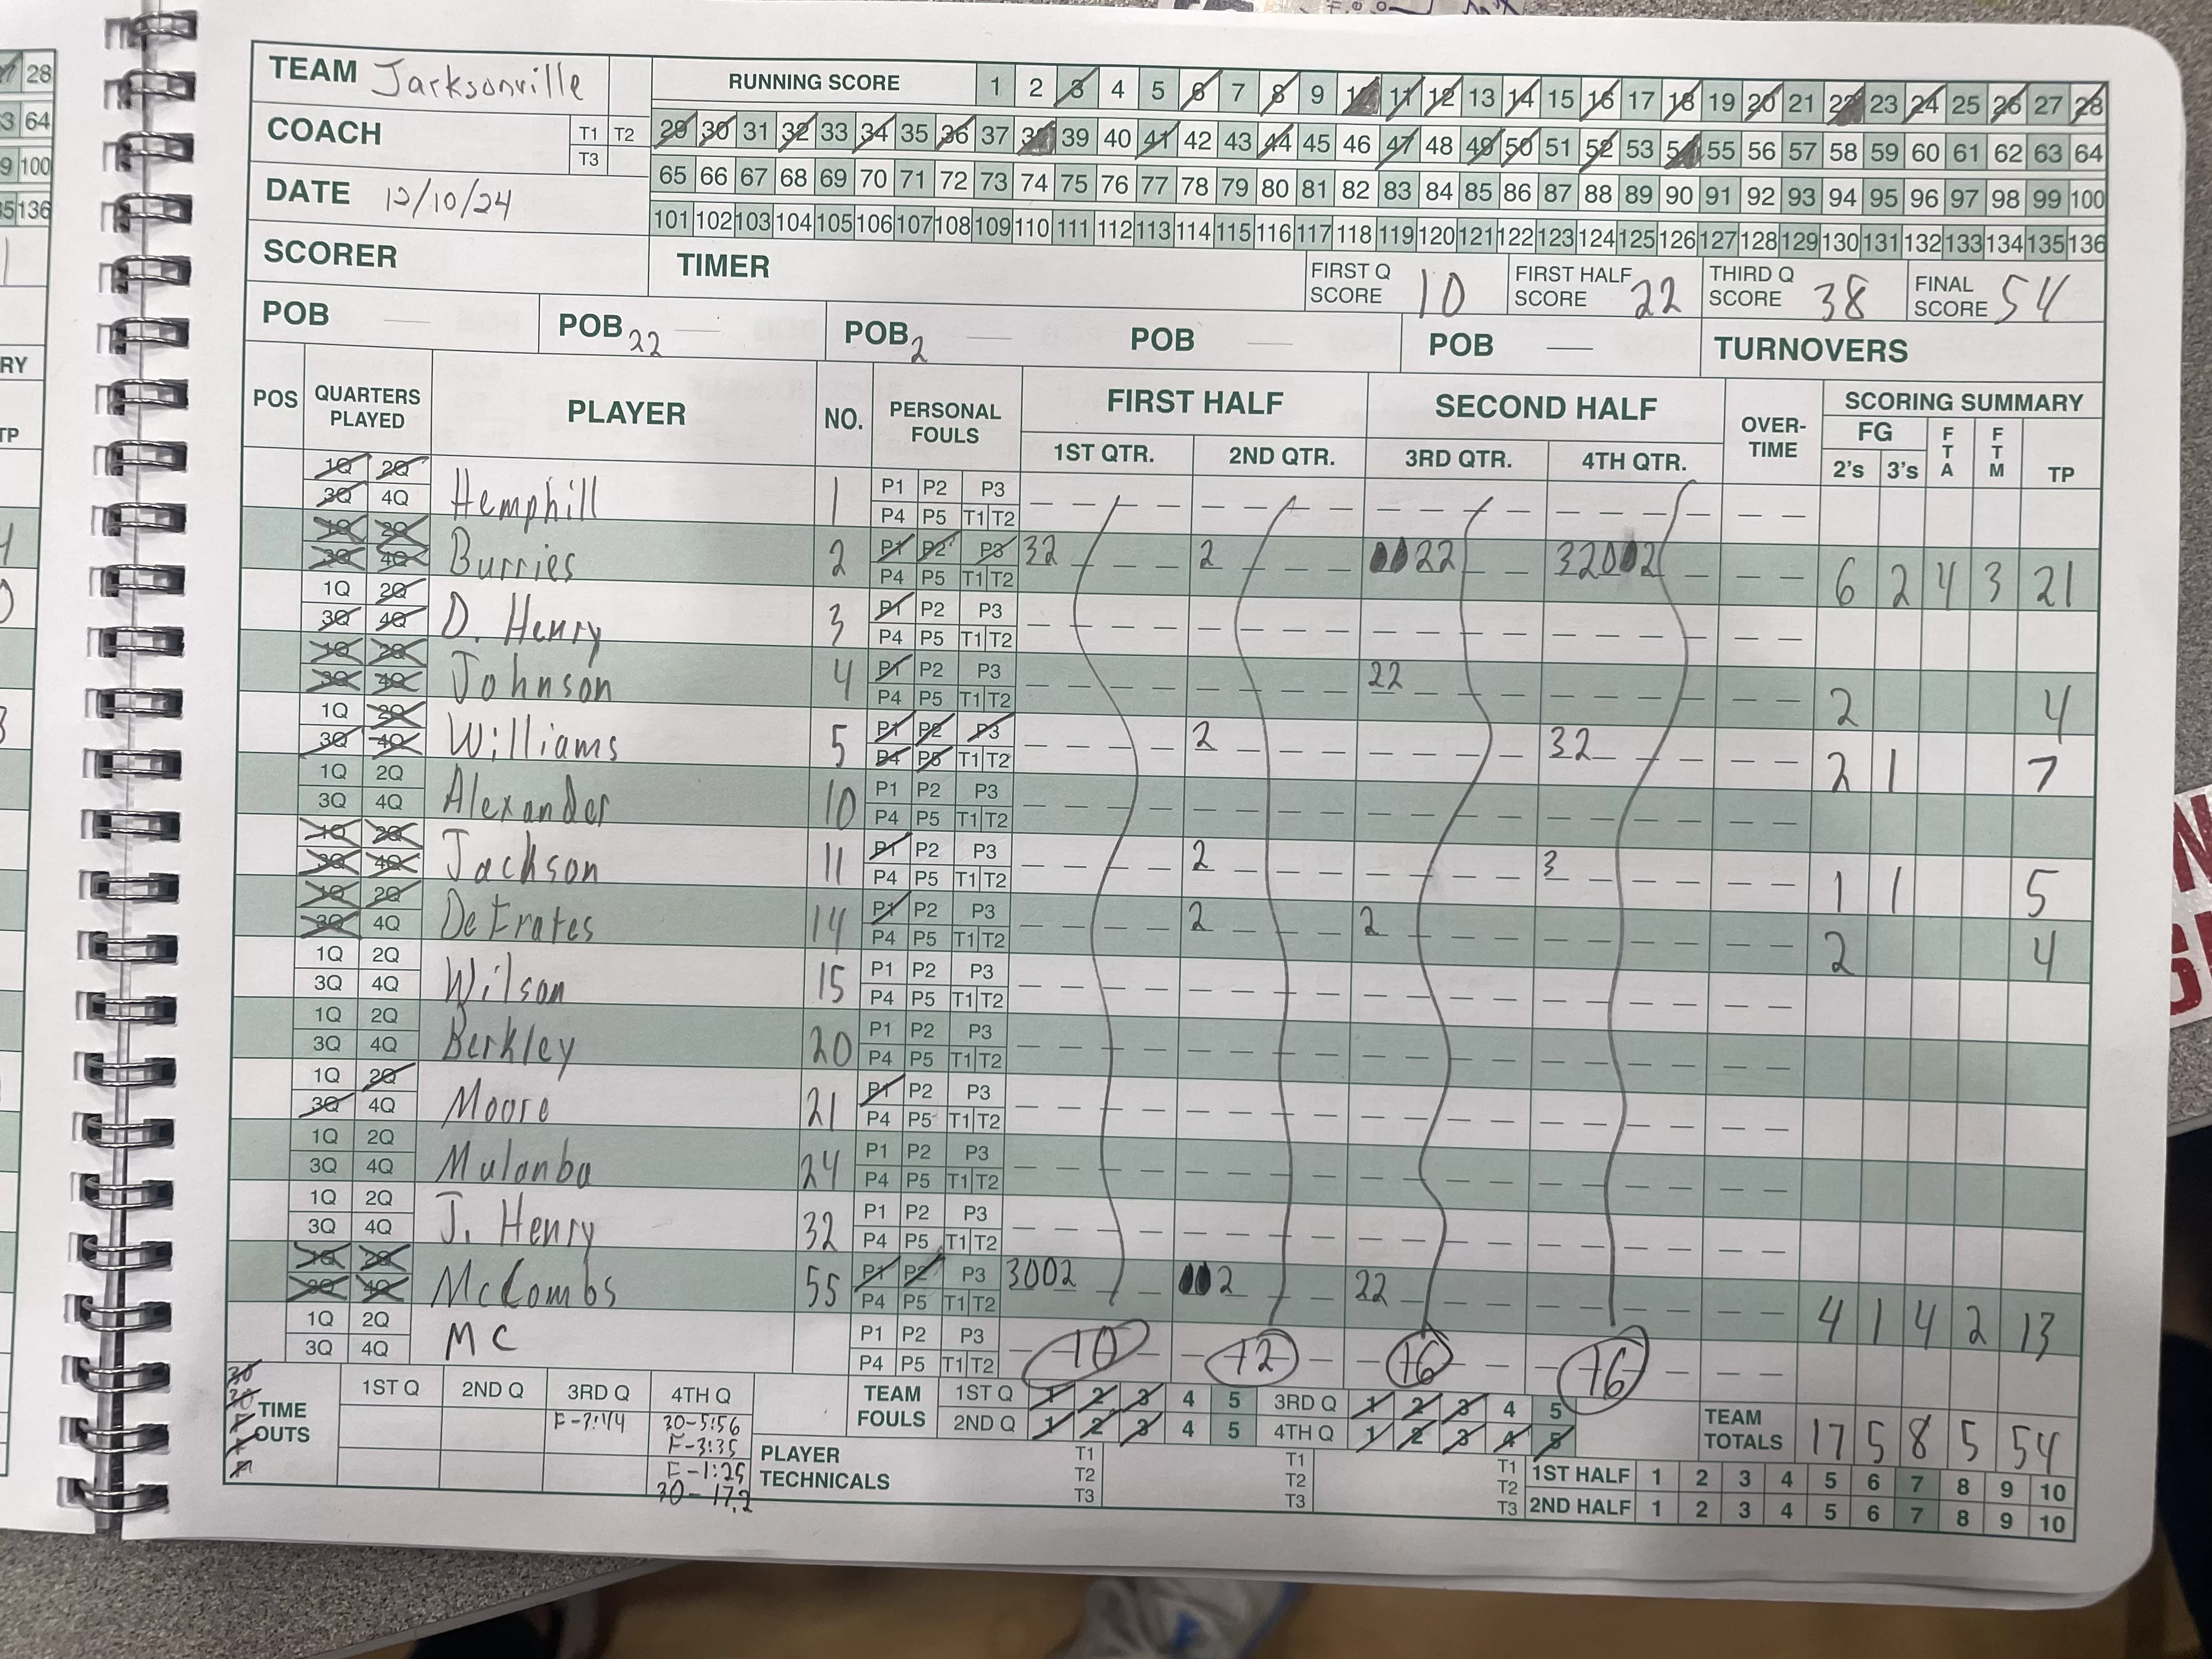 TEAM Jacksonville
RUNNING SCORE 1 2 3 4 5 6 7 8 9 10 11 12 13 14 15 16 17 18 19 20 21 22 23 24 25 26 27 28
COACH T1 T2 T3
29 30 31 32 33 34 35 36 37 38 39 40 41 42 43 44 45 46 47 48 49 50 51 52 53 54 55 56 57 58 59 60 61 62 63 64
DATE 12/10/24
65 66 67 68 69 70 71 72 73 74 75 76 77 78 79 80 81 82 83 84 85 86 87 88 89 90 91 92 93 94 95 96 97 98 99 100
101 102 103 104 105 106 107 108 109 110 111 112 113 114 115 116 117 118 119 120 121 122 123 124 125 126 127 128 129 130 131 132 133 134 135 136
SCORER TIMER FIRST Q SCORE 10 FIRST HALF SCORE 22 THIRD Q SCORE 38 FINAL SCORE 54
POB — POB 22 — POB 2 — POB — POB — TURNOVERS
POS QUARTERS PLAYED PLAYER NO. PERSONAL FOULS FIRST HALF SECOND HALF OVER-TIME SCORING SUMMARY
1ST QTR. 2ND QTR. 3RD QTR. 4TH QTR. FG 2's 3's FTA FTM TP
1Q 2Q 3Q 4Q Hemphill 1 P1 P2 P3 P4 P5 T1 T2
1Q 2Q 3Q 4Q Burries 2 P1 P2 P3 P4 P5 T1 T2 32 2 22 32002 6 2 4 3 21
1Q 2Q 3Q 4Q D. Henry 3 P1 P2 P3 P4 P5 T1 T2
1Q 2Q 3Q 4Q Johnson 4 P1 P2 P3 P4 P5 T1 T2 22 2 4
1Q 2Q 3Q 4Q Williams 5 P1 P2 P3 P4 P5 T1 T2 2 32 2 1 7
1Q 2Q 3Q 4Q Alexander 10 P1 P2 P3 P4 P5 T1 T2
1Q 2Q 3Q 4Q Jackson 11 P1 P2 P3 P4 P5 T1 T2 2 3 1 1 5
1Q 2Q 3Q 4Q DeFrates 14 P1 P2 P3 P4 P5 T1 T2 2 2 2 4
1Q 2Q 3Q 4Q Wilson 15 P1 P2 P3 P4 P5 T1 T2
1Q 2Q 3Q 4Q Berkley 20 P1 P2 P3 P4 P5 T1 T2
1Q 2Q 3Q 4Q Moore 21 P1 P2 P3 P4 P5 T1 T2
1Q 2Q 3Q 4Q Mulanba 24 P1 P2 P3 P4 P5 T1 T2
1Q 2Q 3Q 4Q J. Henry 32 P1 P2 P3 P4 P5 T1 T2
1Q 2Q 3Q 4Q McCombs 55 P1 P2 P3 P4 P5 T1 T2 3002 002 22 4 1 4 2 13
1Q 2Q 3Q 4Q MC P1 P2 P3 P4 P5 T1 T2 10 12 16 16
TIME OUTS 1ST Q 2ND Q 3RD Q 4TH Q
F-7:44 30-5:56
F-3:35
F-1:25
30-17.2
TEAM FOULS 1ST Q 1 2 3 4 5 3RD Q 1 2 3 4 5
2ND Q 1 2 3 4 5 4TH Q 1 2 3 4 5
TEAM TOTALS 17 5 8 5 54
PLAYER TECHNICALS T1 T2 T3 T1 T2 T3 T1 T2 T3
1ST HALF 1 2 3 4 5 6 7 8 9 10
2ND HALF 1 2 3 4 5 6 7 8 9 10